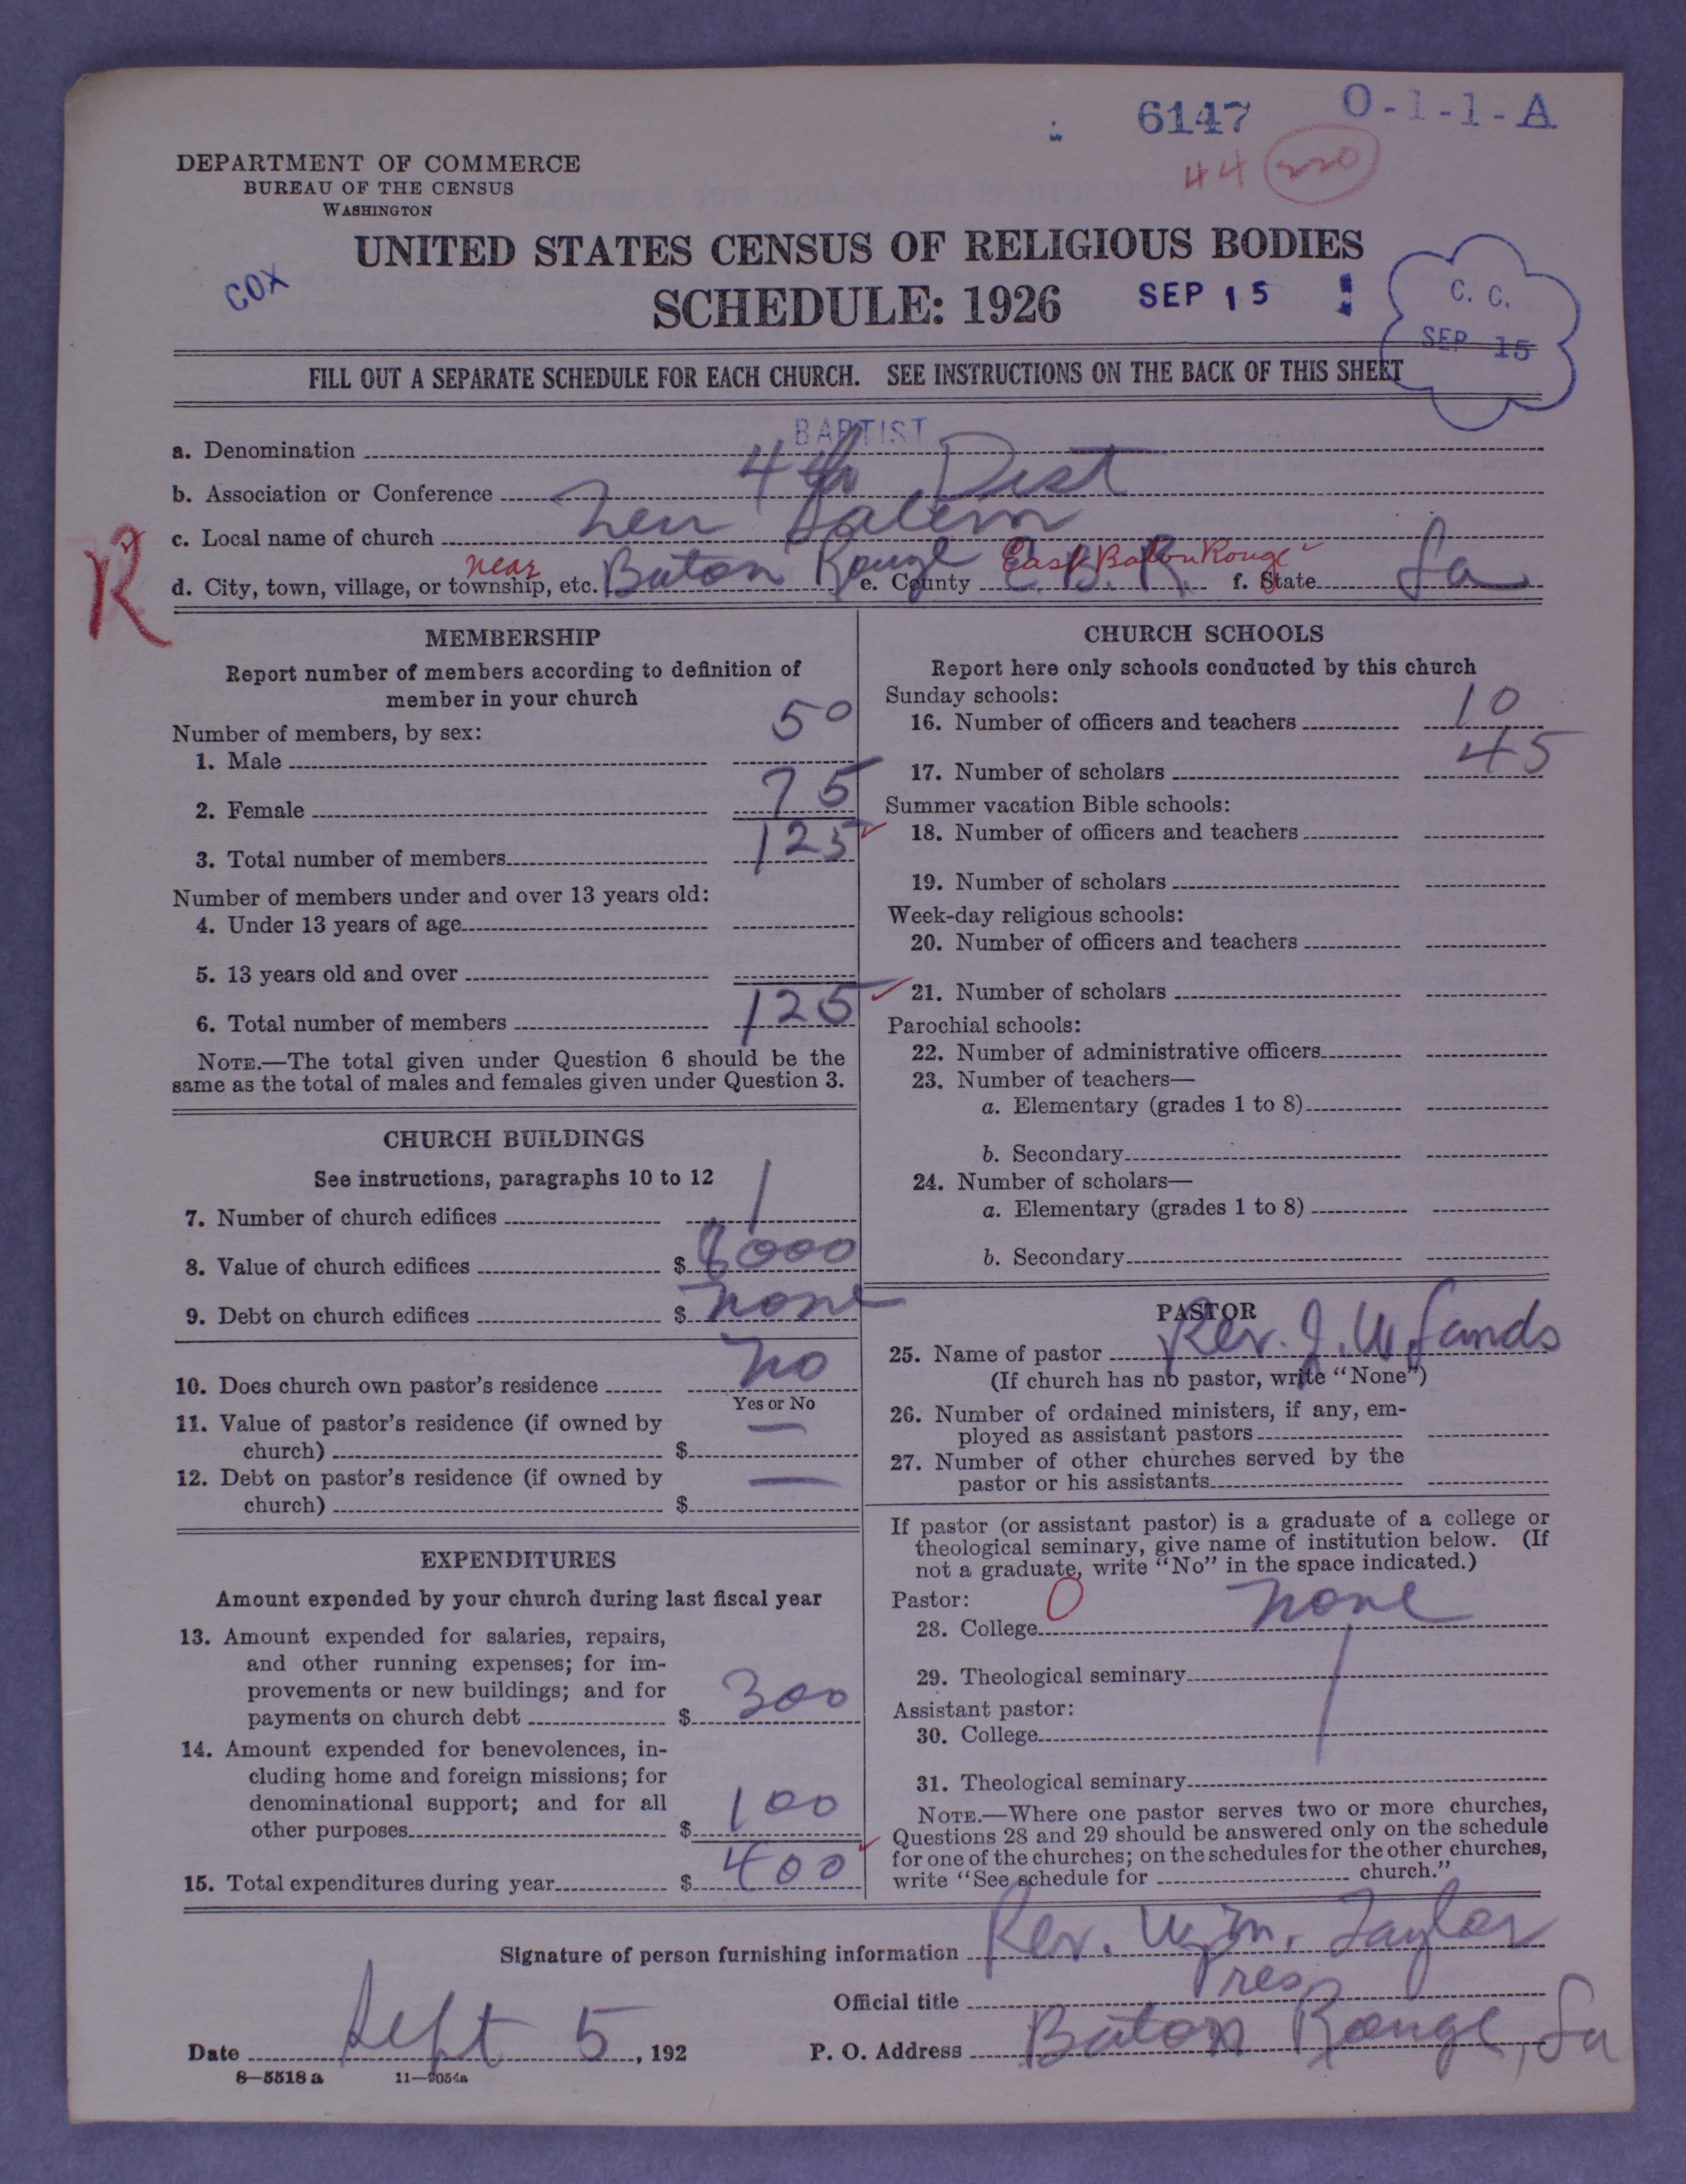 6147 O-1-1-A
44 220
DEPARTMENT OF COMMERCE
BUREAU OF THE CENSUS
WASHINGTON
UNITED STATES CENSUS OF RELIGIOUS BODIES
COX
SCHEDULE: 1926 SEP 15
C. C.
SEP 15
FILL OUT A SEPARATE SCHEDULE FOR EACH CHURCH. SEE INSTRUCTIONS ON THE BACK OF THIS SHEET
BAPTIST
a. Denomination
b. Association or Conference 4th Dist
c. Local name of church New Salem
R
d. City, town, village, or township, etc. near Baton Rouge e. County E. B. R. East Baton Rouge f. State La
MEMBERSHIP
Report number of members according to definition of
member in your church
Number of members, by sex:
1. Male 50
2. Female 75
3. Total number of members 125
Number of members under and over 13 years old:
4. Under 13 years of age
5. 13 years old and over
6. Total number of members 125
NOTE.—The total given under Question 6 should be the
same as the total of males and females given under Question 3.
CHURCH BUILDINGS
See instructions, paragraphs 10 to 12
7. Number of church edifices 1
8. Value of church edifices $ 8000
9. Debt on church edifices $ none
10. Does church own pastor's residence no
Yes or No
11. Value of pastor's residence (if owned by
church) $ —
12. Debt on pastor's residence (if owned by
church) $ —
EXPENDITURES
Amount expended by your church during last fiscal year
13. Amount expended for salaries, repairs,
and other running expenses; for im-
provements or new buildings; and for
payments on church debt $ 300
14. Amount expended for benevolences, in-
cluding home and foreign missions; for
denominational support; and for all
other purposes $ 100
15. Total expenditures during year $ 400
CHURCH SCHOOLS
Report here only schools conducted by this church
Sunday schools:
16. Number of officers and teachers 10
17. Number of scholars 45
Summer vacation Bible schools:
18. Number of officers and teachers
19. Number of scholars
Week-day religious schools:
20. Number of officers and teachers
21. Number of scholars
Parochial schools:
22. Number of administrative officers
23. Number of teachers—
a. Elementary (grades 1 to 8)
b. Secondary
24. Number of scholars—
a. Elementary (grades 1 to 8)
b. Secondary
PASTOR
25. Name of pastor Rev. J. W. Sands
(If church has no pastor, write "None")
26. Number of ordained ministers, if any, em-
ployed as assistant pastors
27. Number of other churches served by the
pastor or his assistants
If pastor (or assistant pastor) is a graduate of a college or
theological seminary, give name of institution below. (If
not a graduate, write "No" in the space indicated.)
Pastor: 0
28. College none
29. Theological seminary
Assistant pastor:
30. College
31. Theological seminary
NOTE.—Where one pastor serves two or more churches,
Questions 28 and 29 should be answered only on the schedule
for one of the churches; on the schedules for the other churches,
write "See schedule for church."
Signature of person furnishing information Rev. Wm. Taylor
Official title Pres
Date Sept 5, 192 P. O. Address Baton Rouge, La
8—5518 a 11—9054a